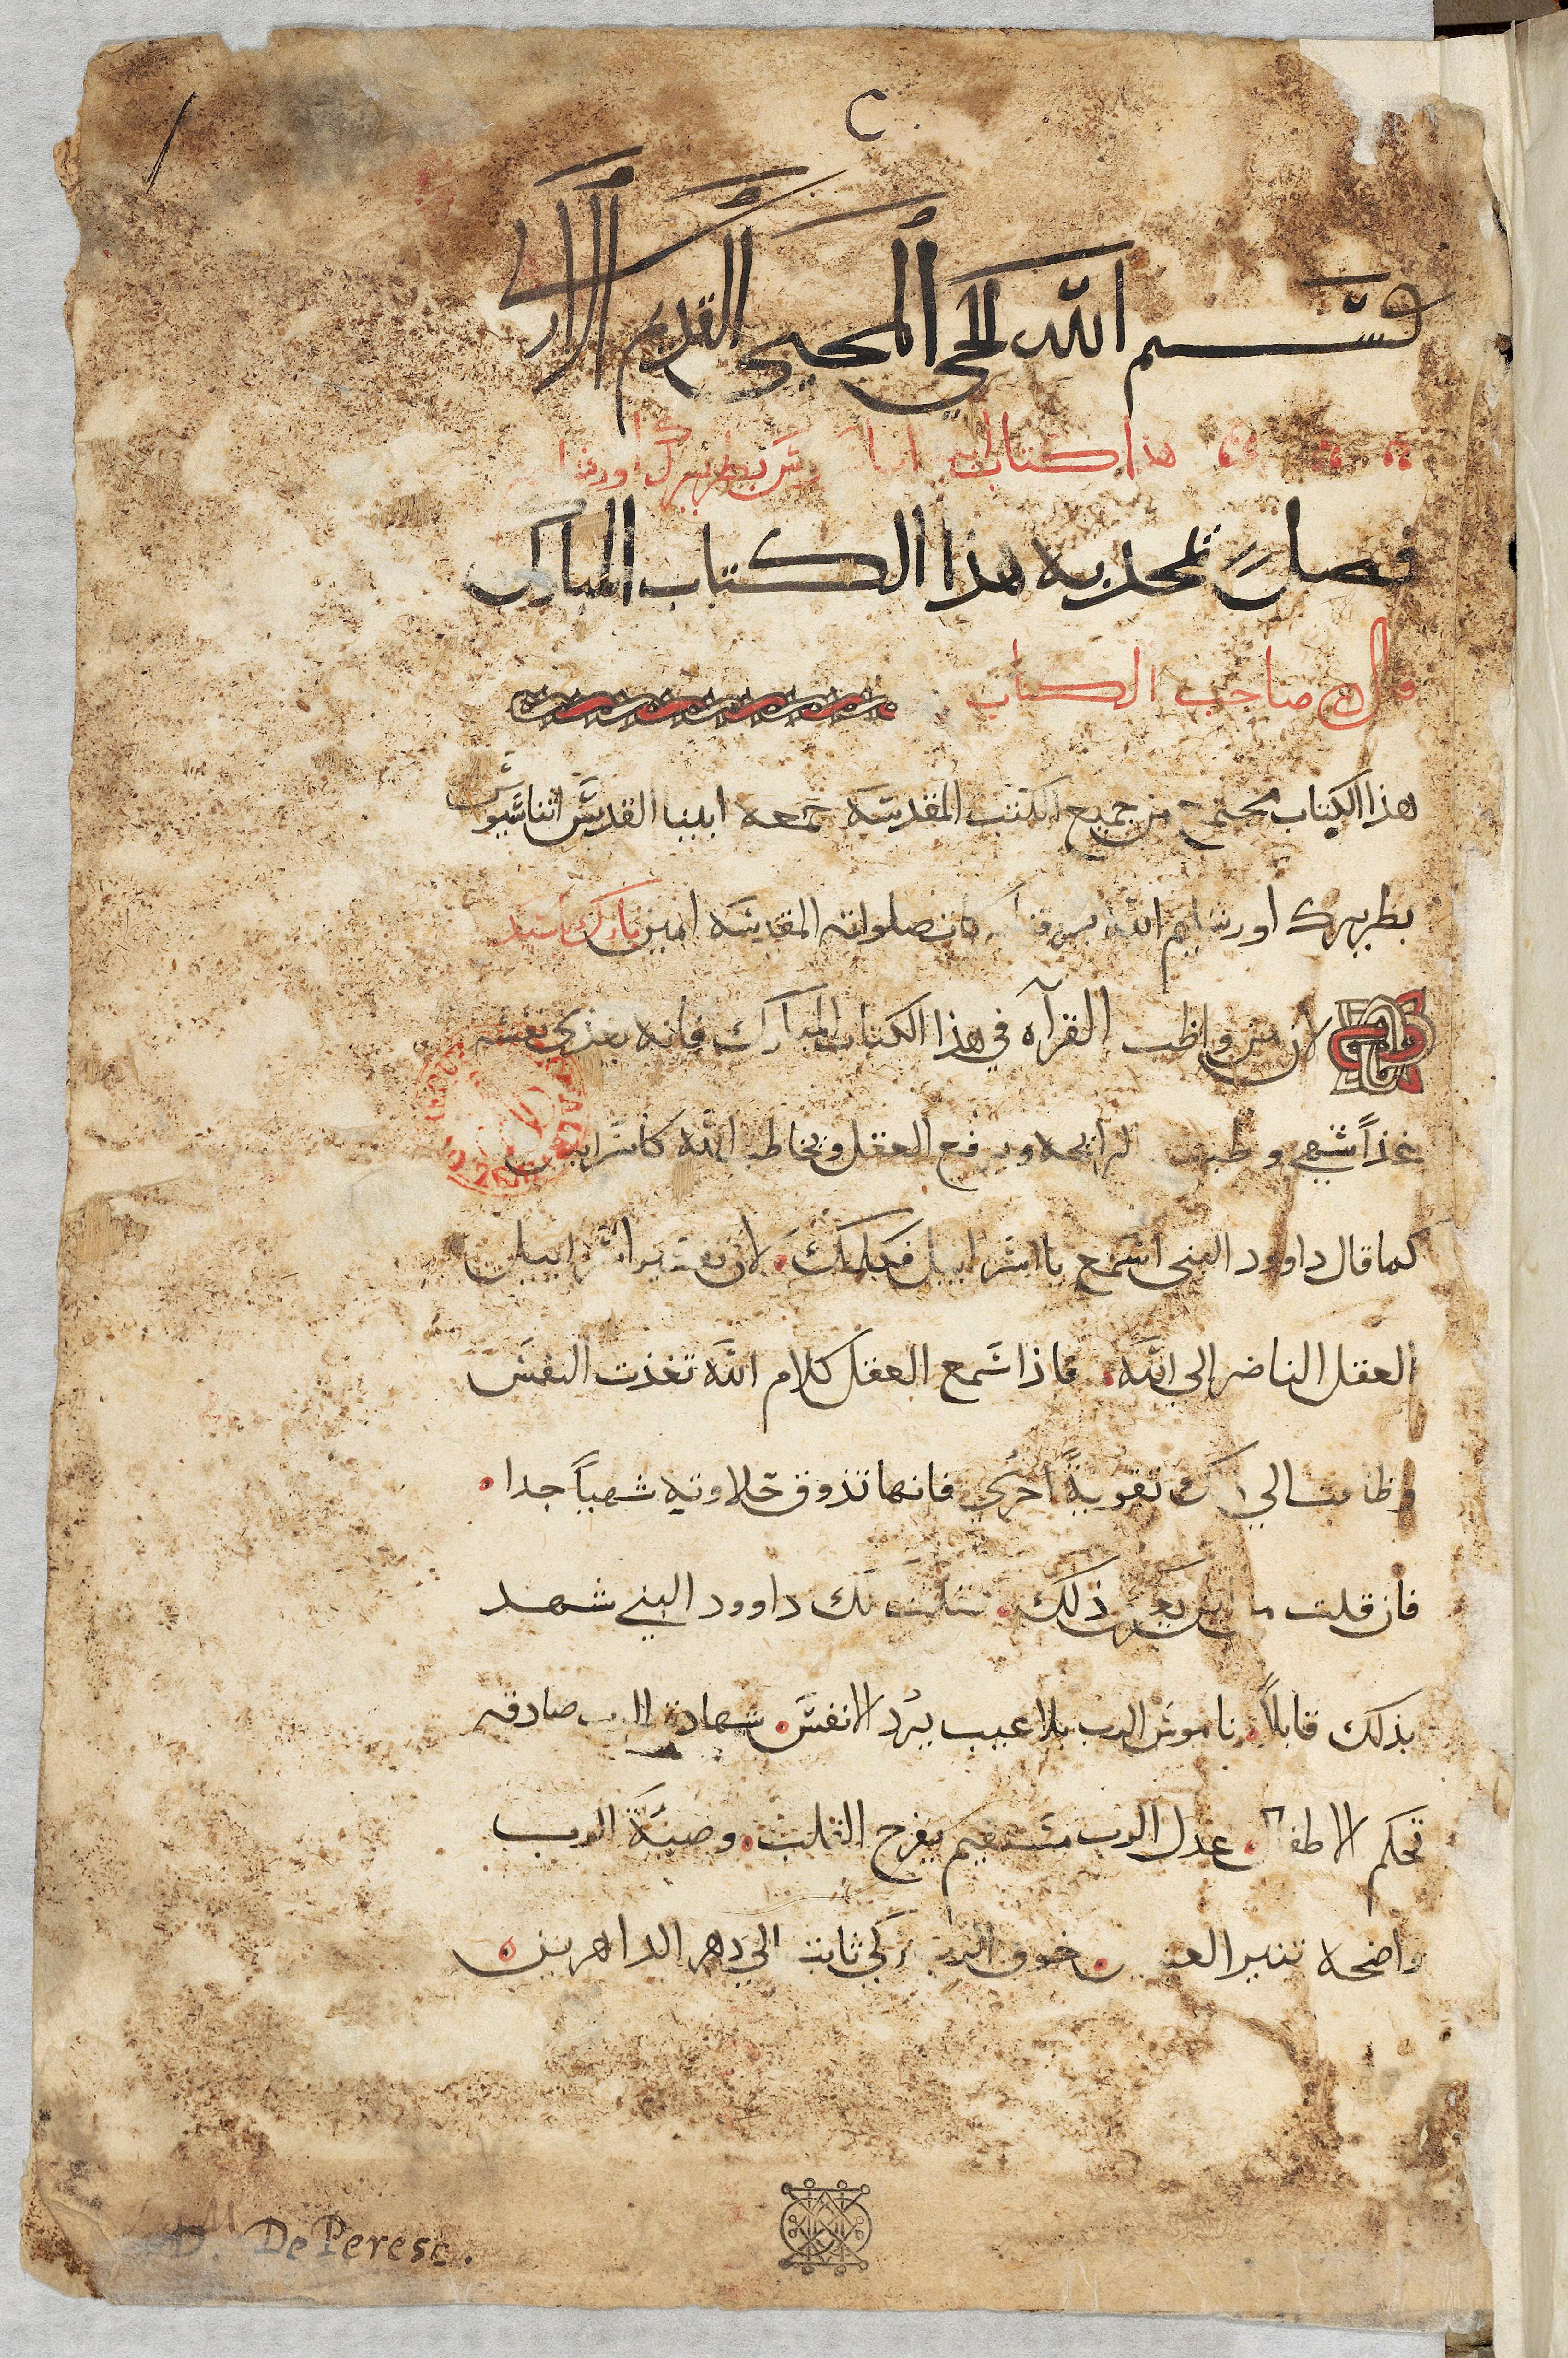 بسم الله الحي المحيي القديم الأزلي
هذا كتاب بطريرك
فصل تحديه هذا الكتاب المبارك
قال صاحب الكتاب
هذا الكتاب مجتمع من جميع الكتب المقدسه جمعه ابينا القديس اثناسيوس
بطريرك اورشليم الله صلواته المقدسه امين بارك
لان من واظب القرآه في هذا الكتاب المبارك فانه يغذي نفسه
غذاً شهي الرايحه ويرفع العقل ويخاطب الله كاسراييل
كما قال داوود النبي اسمع يا اسراييل فكلمك. لان تفسير اسراييل
العقل الناضر الي الله. فاذا سمع العقل كلام الله تغذت النفس
تقويةً اخري فانها تذوق حلاوته شهياً جدا.
فان قلت من اين يكون ذلك. لك داوود النبي شهد
بذلك قايلاً. ناموس الرب بلا عيب يرد الانفس. شهادة الرب صادقه
تحكم الاطفال. عدل الرب مستقيم يفرح القلب. وصية الرب
واضحه تنير العينين. خوف الرب زكي ثابت الي دهر الداهرين.
De Peresc.